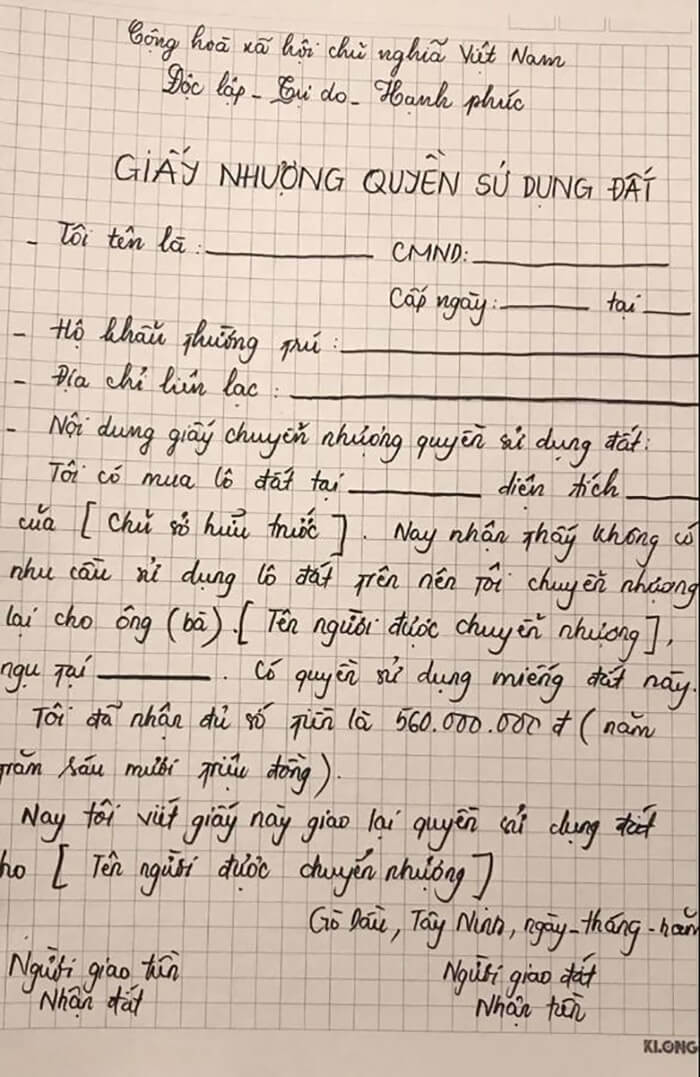 Cộng hoà xã hội chủ nghĩa Việt Nam
Độc lập - Tự do - Hạnh phúc
GIẤY NHƯỢNG QUYỀN SỬ DỤNG ĐẤT
- Tôi tên là : ________ CMND: ________
Cấp ngày: ____ tại ___
- Hộ khẩu thường trú : ________
- Địa chỉ liên lạc : ________
- Nội dung giấy chuyển nhượng quyền sử dụng đất:
Tôi có mua lô đất tại ________ diện tích ____
của [ Chủ sở hữu trước ] . Nay nhận thấy không có
nhu cầu sử dụng lô đất trên nên tôi chuyển nhượng
lại cho ông (bà) . [ Tên người được chuyển nhượng ] ,
ngụ tại ________ . Có quyền sử dụng miếng đất này.
Tôi đã nhận đủ số tiền là 560.000.000 đ ( năm
trăm sáu mươi triệu đồng ) .
Nay tôi viết giấy này giao lại quyền sử dụng đất
ho [ Tên người được chuyển nhượng ]
Gò Dầu, Tây Ninh, ngày - tháng - năm
Người giao tiền Người giao đất
Nhận đất Nhận tiền
KLONG